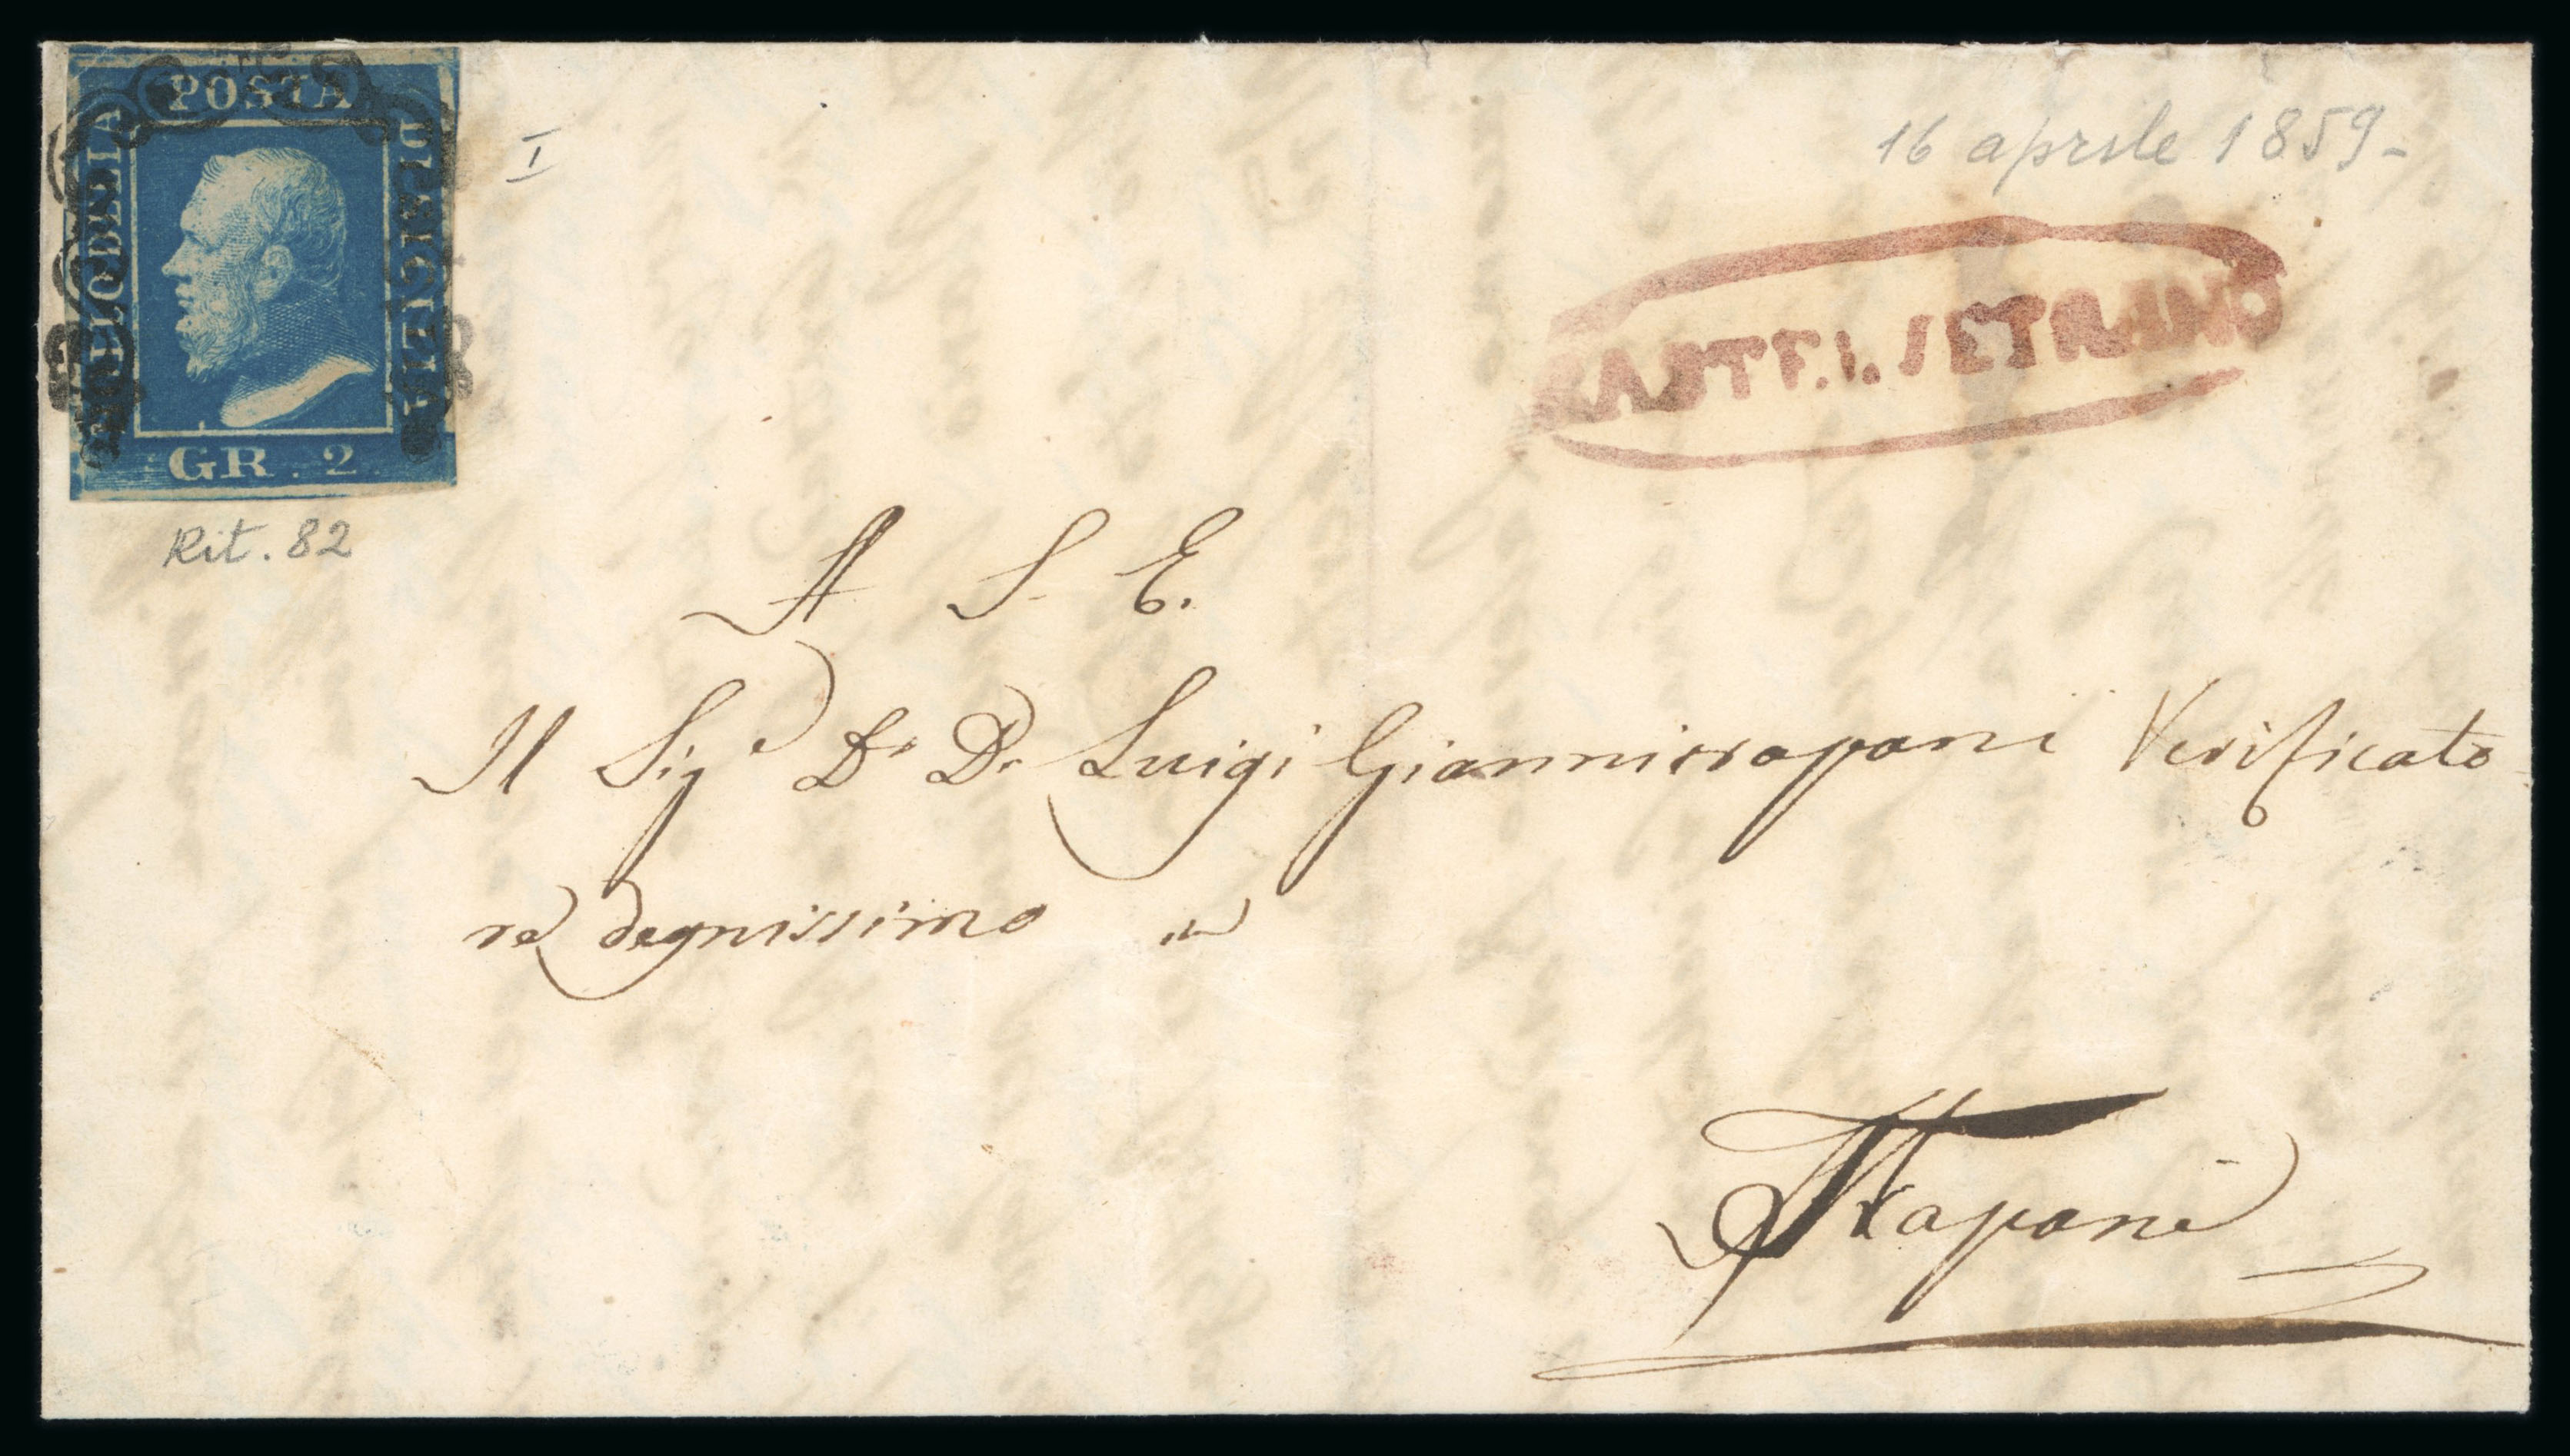 POSTA
BOLLO DELLA
DI SICILIA
GR. 2
I
16 aprile 1859-
CASTELVETRANO
Rit. 82
A S. E.
Il Sig.e Dr. D. Luigi Giannitrapani Verificato-
re degnissimo in
Trapani